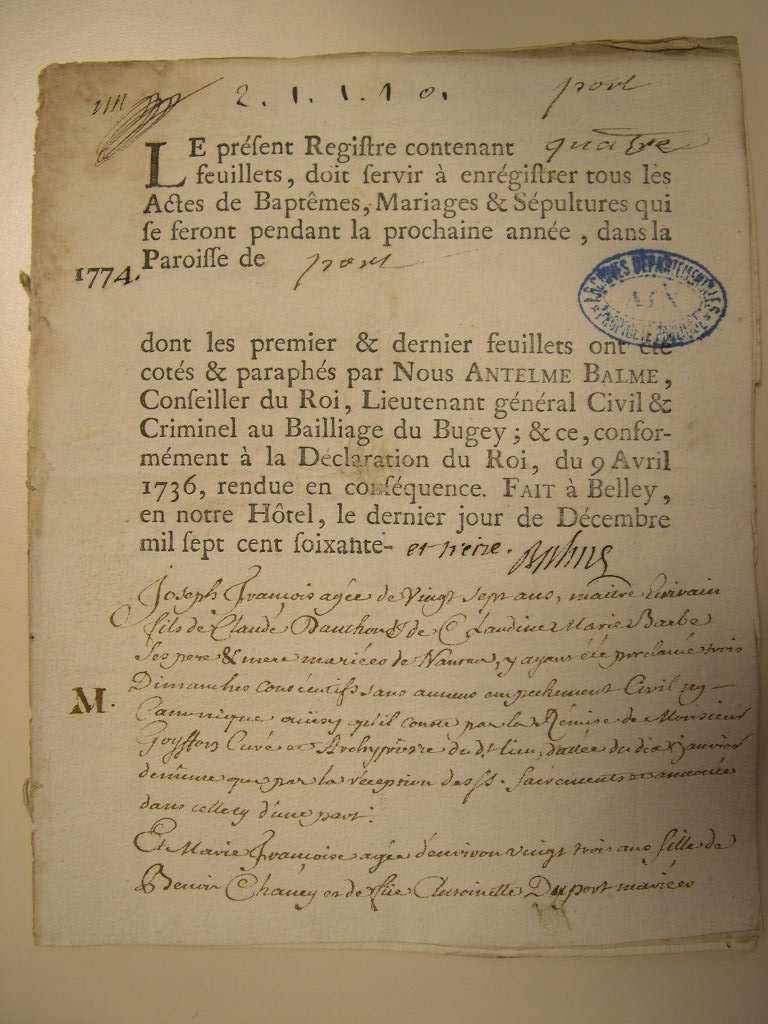 2. 1. 1. 1 0. port
LE préſent Regiſtre contenant quatre
feuillets, doit ſervir à enrégiſtrer tous les
Actes de Baptêmes, Mariages & Sépultures qui
ſe feront pendant la prochaine année, dans la
1774. Paroiſſe de port
ARCHIVES DÉPARTEMENTALES
AIN
PROPRIÉTÉ PUBLIQUE
dont les premier & dernier feuillets ont été
cotés & paraphés par Nous ANTELME BALME,
Conſeiller du Roi, Lieutenant général Civil &
Criminel au Bailliage du Bugey; & ce, confor-
mément à la Déclaration du Roi, du 9 Avril
1736, rendue en conſéquence. FAIT à Belley,
en notre Hôtel, le dernier jour de Décembre
mil ſept cent ſoixante- et treize.
Joseph François agée de Vingt sept ans, maitre Ecrivain
fils de Claude & de Claudine Marie Barbe
ses pere & mere mariées de Nantua, y ayant été proclamée trois
Dimanches consecutifs sans aucune empechement Civil ny
M. Canonique ainsy qu'il conste par la Remise de Monsieur
Goyffon Curé et Archyprêtre du dt lieu, dattée du dix janvier
que par la réception des
dans celle cy d'une part.
Et Marie Françoise agée d'environ vingt trois ans fille de
Benoit et de Antoinette Duport mariées